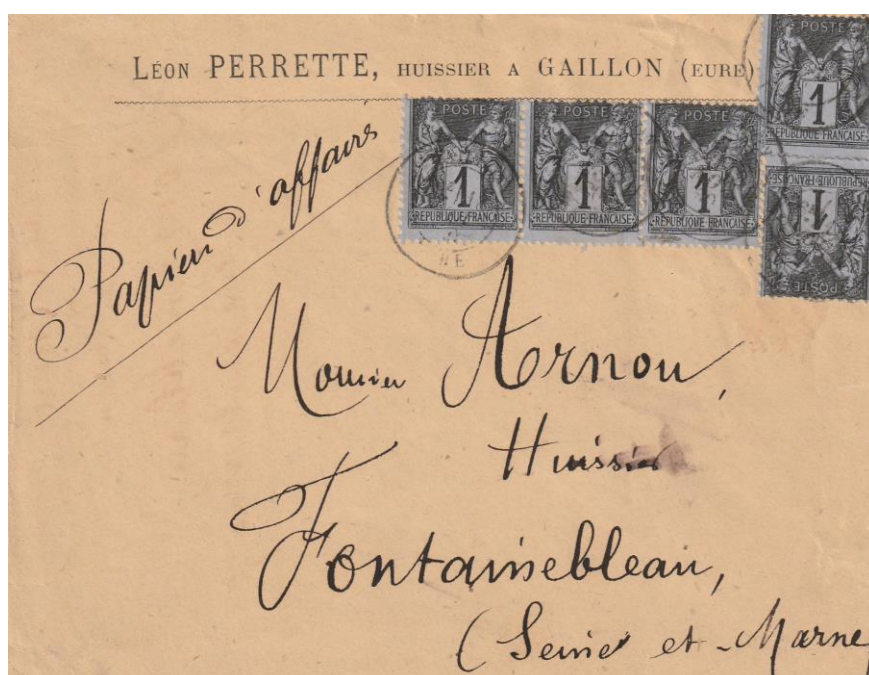 LÉON PERRETTE, HUISSIER A GAILLON (EURE)
POSTE
1
RÉPUBLIQUE FRANÇAISE
POSTE
1
RÉPUBLIQUE FRANÇAISE
POSTE
1
RÉPUBLIQUE FRANÇAISE
POSTE
1
RÉPUBLIQUE FRANÇAISE
POSTE
1
RÉPUBLIQUE FRANÇAISE
Papiers d'affaires
Monsieur Arnou,
Huissier
Fontainebleau,
(Seine et-Marne